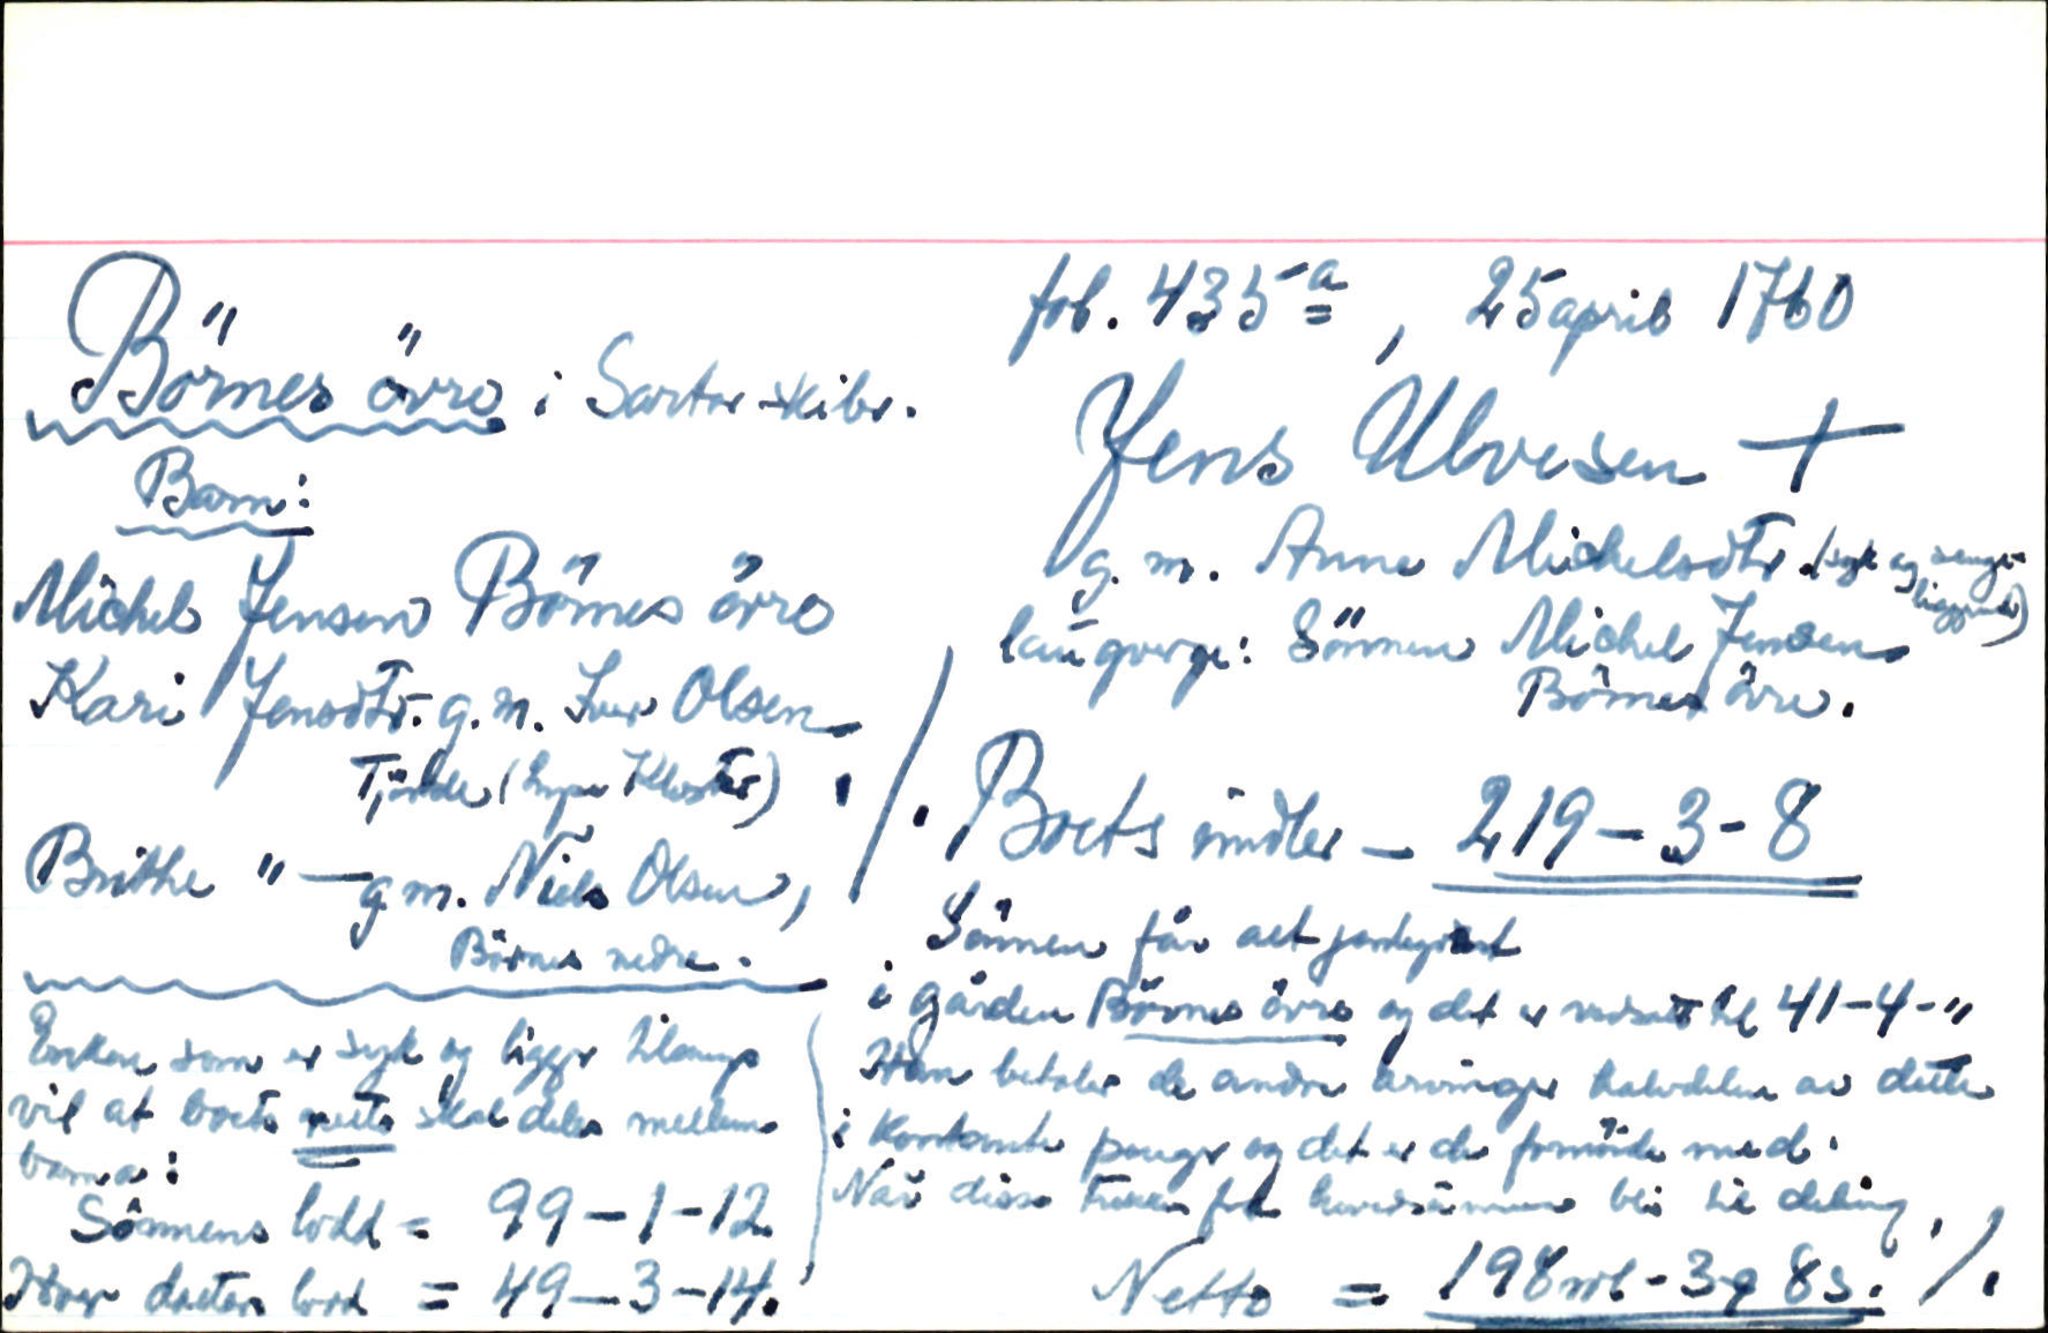 fol. 435a, 25 april 1760
Börnes övre i Sartor skibr.
Jens Ulvesen +
g. m. Anna Michelsdtr (syk og senge-
liggende)
laugverge: Sönnen Michel Jensen
Börnes övre.
Barn:
Michel Jensen Börnes övre
Kari Jensdtr. g. m. Iver Olsen
Tjälde (Lyse Kloster)
Brithe " — g m. Niels Olsen,
Börnes nedre.
Enken som er syk og ligger tilsengs
vil at boets netto skal deles mellem
barna:
Sönnens lodd = 99-1-12
Hver datters lodd = 49-3-14.
./. Boets midler — 219-3-8
Sönnen får alt jordegodset
i gården Börnes övre og det er verdsatt til 41-4-"
Han betaler de andre arvinger halvdelen av dette
i kontante penger og det er de fornöide med.
Når disse trekkes fra hovedsummen blir til deling,
Netto = 198 rd - 3 q 8 s. ./.